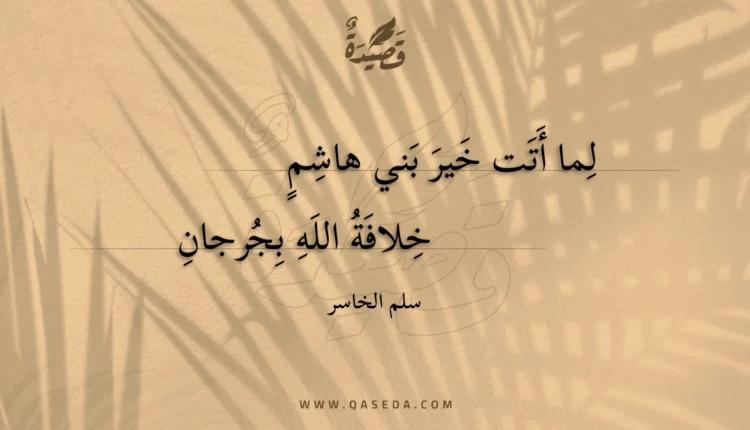 قَصِيْدَةٌ
لِما أَتَت خَيرَ بَني هاشِمٍ
خِلافَةُ اللَهِ بِجُرجانِ
سلم الخاسر
WWW.QASEDA.COM